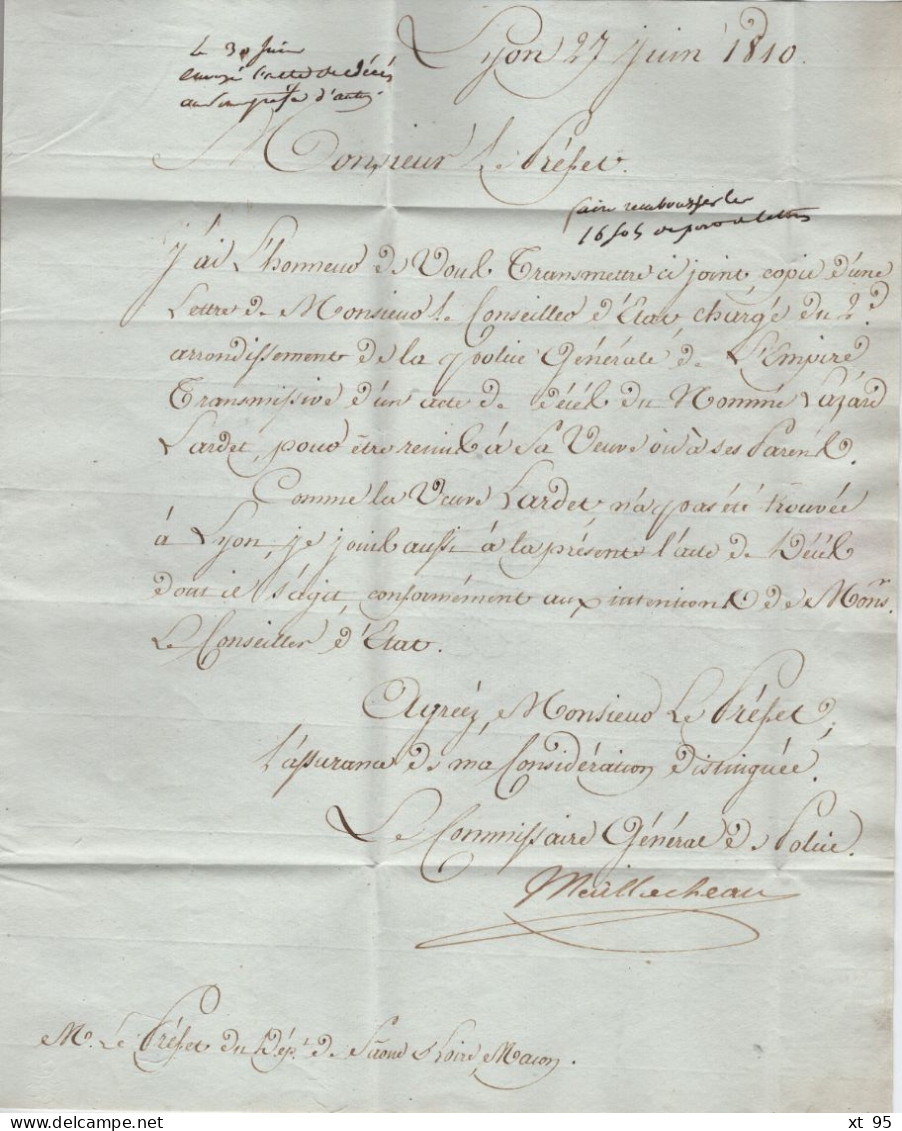 Lyon 27 juin 1810.
le 30 juin
envoyé l'acte de décès
au Sous préfet d'autun
Monsieur Le Préfet.
faire rembourser les
16 sols de port de lettres
J'ai L'honneur de Vous Transmettre ci joint, copie d'une
Lettre de Monsieur le Conseiller d'Etat, chargé du 2.d
arrondissement de la police Générale de L'Empire
Transmissive d'un acte de décès du Nommé Lazard
Lardet, pour être remis à Sa Veuve où à ses Parens.
Comme la Veuve Lardet, n'a pas été trouvée
à Lyon, je joins aussi à la présente l'acte de Décès
dont il s'agit, conformément aux intentions de Mons.r
Le Conseiller d'Etat.
Agréez, Monsieur Le Préfet,
l'assurance de ma Considération distinguée.
Le Commissaire Général de Police.
Maillocheau
Mr. Le Préfet du Dép.t de Saone & Loire, Macon.
xt 95